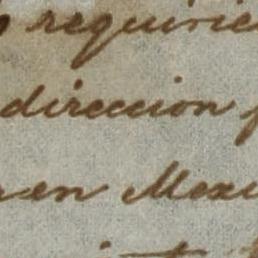 requirie
direccion
en Mexi